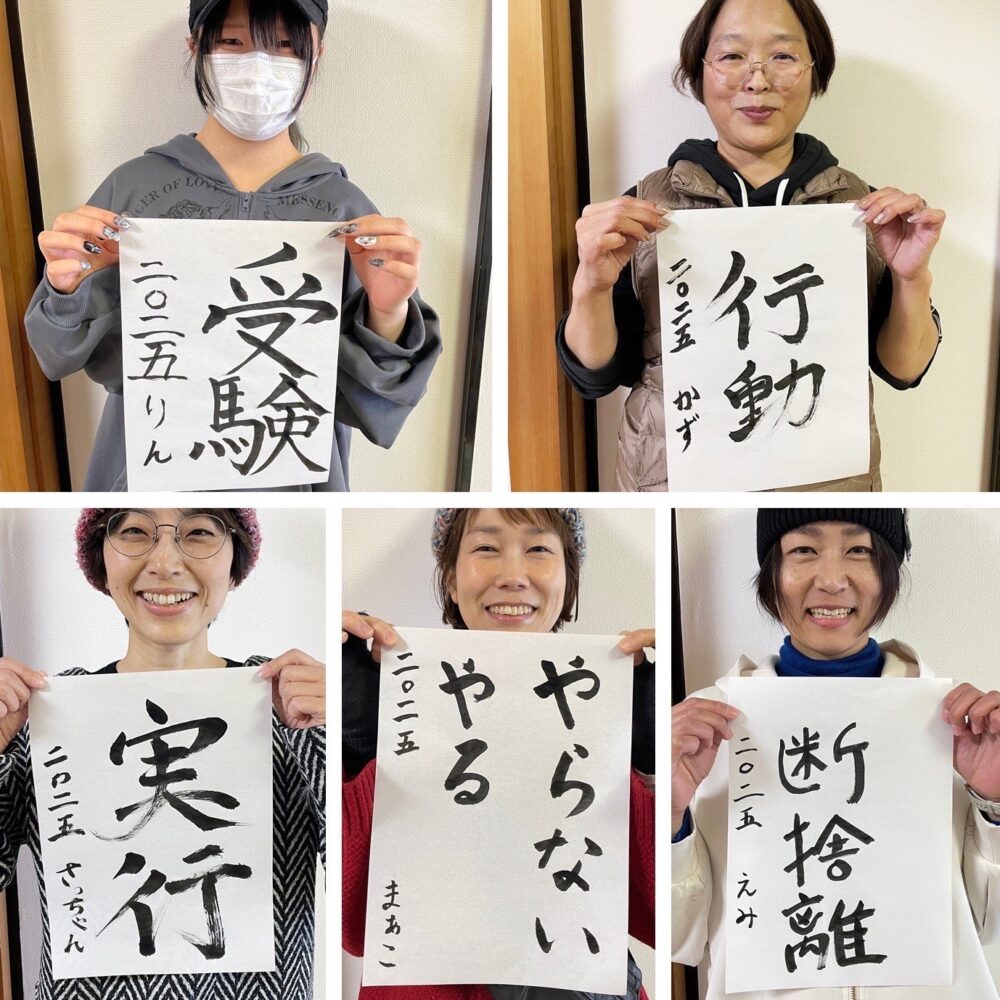 GER OF LOVE
MESSENG
受験
二〇二五 りん
行動
二〇二五 かず
実行
二〇二五 さっちゃん
やらない
やる
二〇二五 まあこ
断捨離
二〇二五 えみ